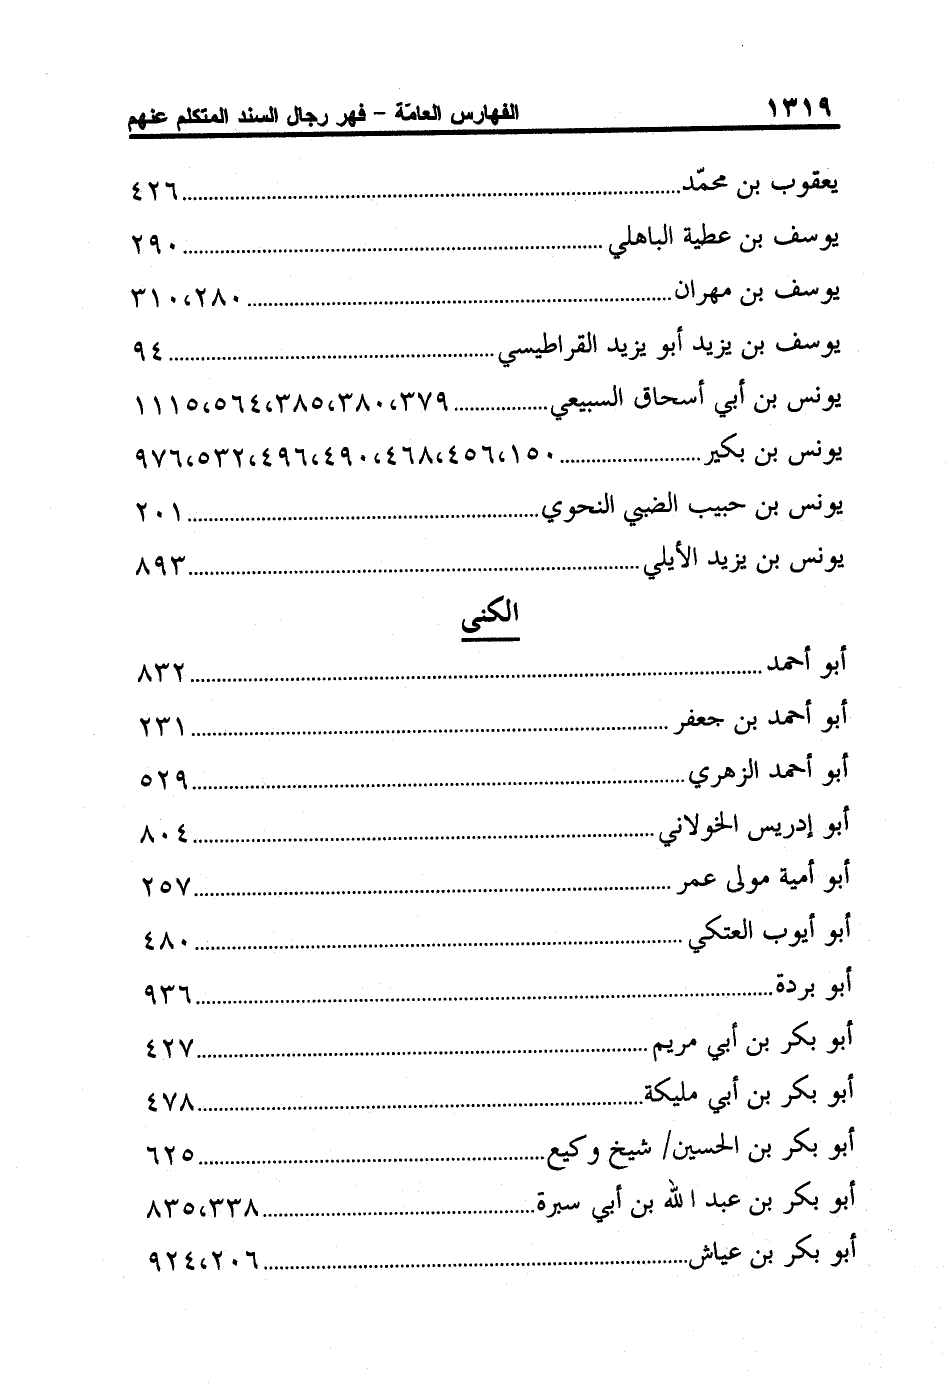 ١٣١٩ الفهارس العامّة – فهر رجال السند المتكلم عنهم
يعقوب بن محمّد ٤٢٦
يوسف بن عطية الباهلي ٢٩٠
يوسف بن مهران ٢٨٠،٣١٠
يوسف بن يزيد أبو يزيد القراطيسي ٩٤
يونس بن أبي أسحاق السبيعي ٣٧٩،٣٨٠،٣٨٥،٥٦٤،١١١٥
يونس بن بكير ١٥٠،٤٥٦،٤٦٨،٤٩٠،٤٩٦،٥٣٢،٩٧٦
يونس بن حبيب الضبي النحوي ٢٠١
يونس بن يزيد الأيلي ٨٩٣
الكنى
أبو أحمد ٨٣٢
أبو أحمد بن جعفر ٢٣١
أبو أحمد الزهري ٥٢٩
أبو إدريس الخولاني ٨٠٤
أبو أمية مولى عمر ٢٥٧
أبو أيوب العتكي ٤٨٠
أبو بردة ٩٣٦
أبو بكر بن أبي مريم ٤٢٧
أبو بكر بن أبي مليكة ٤٧٨
أبو بكر بن الحسين/ شيخ وكيع ٦٢٥
أبو بكر بن عبد الله بن أبي سبرة ٣٣٨،٨٣٥
أبو بكر بن عياش ٢٠٦،٩٢٤